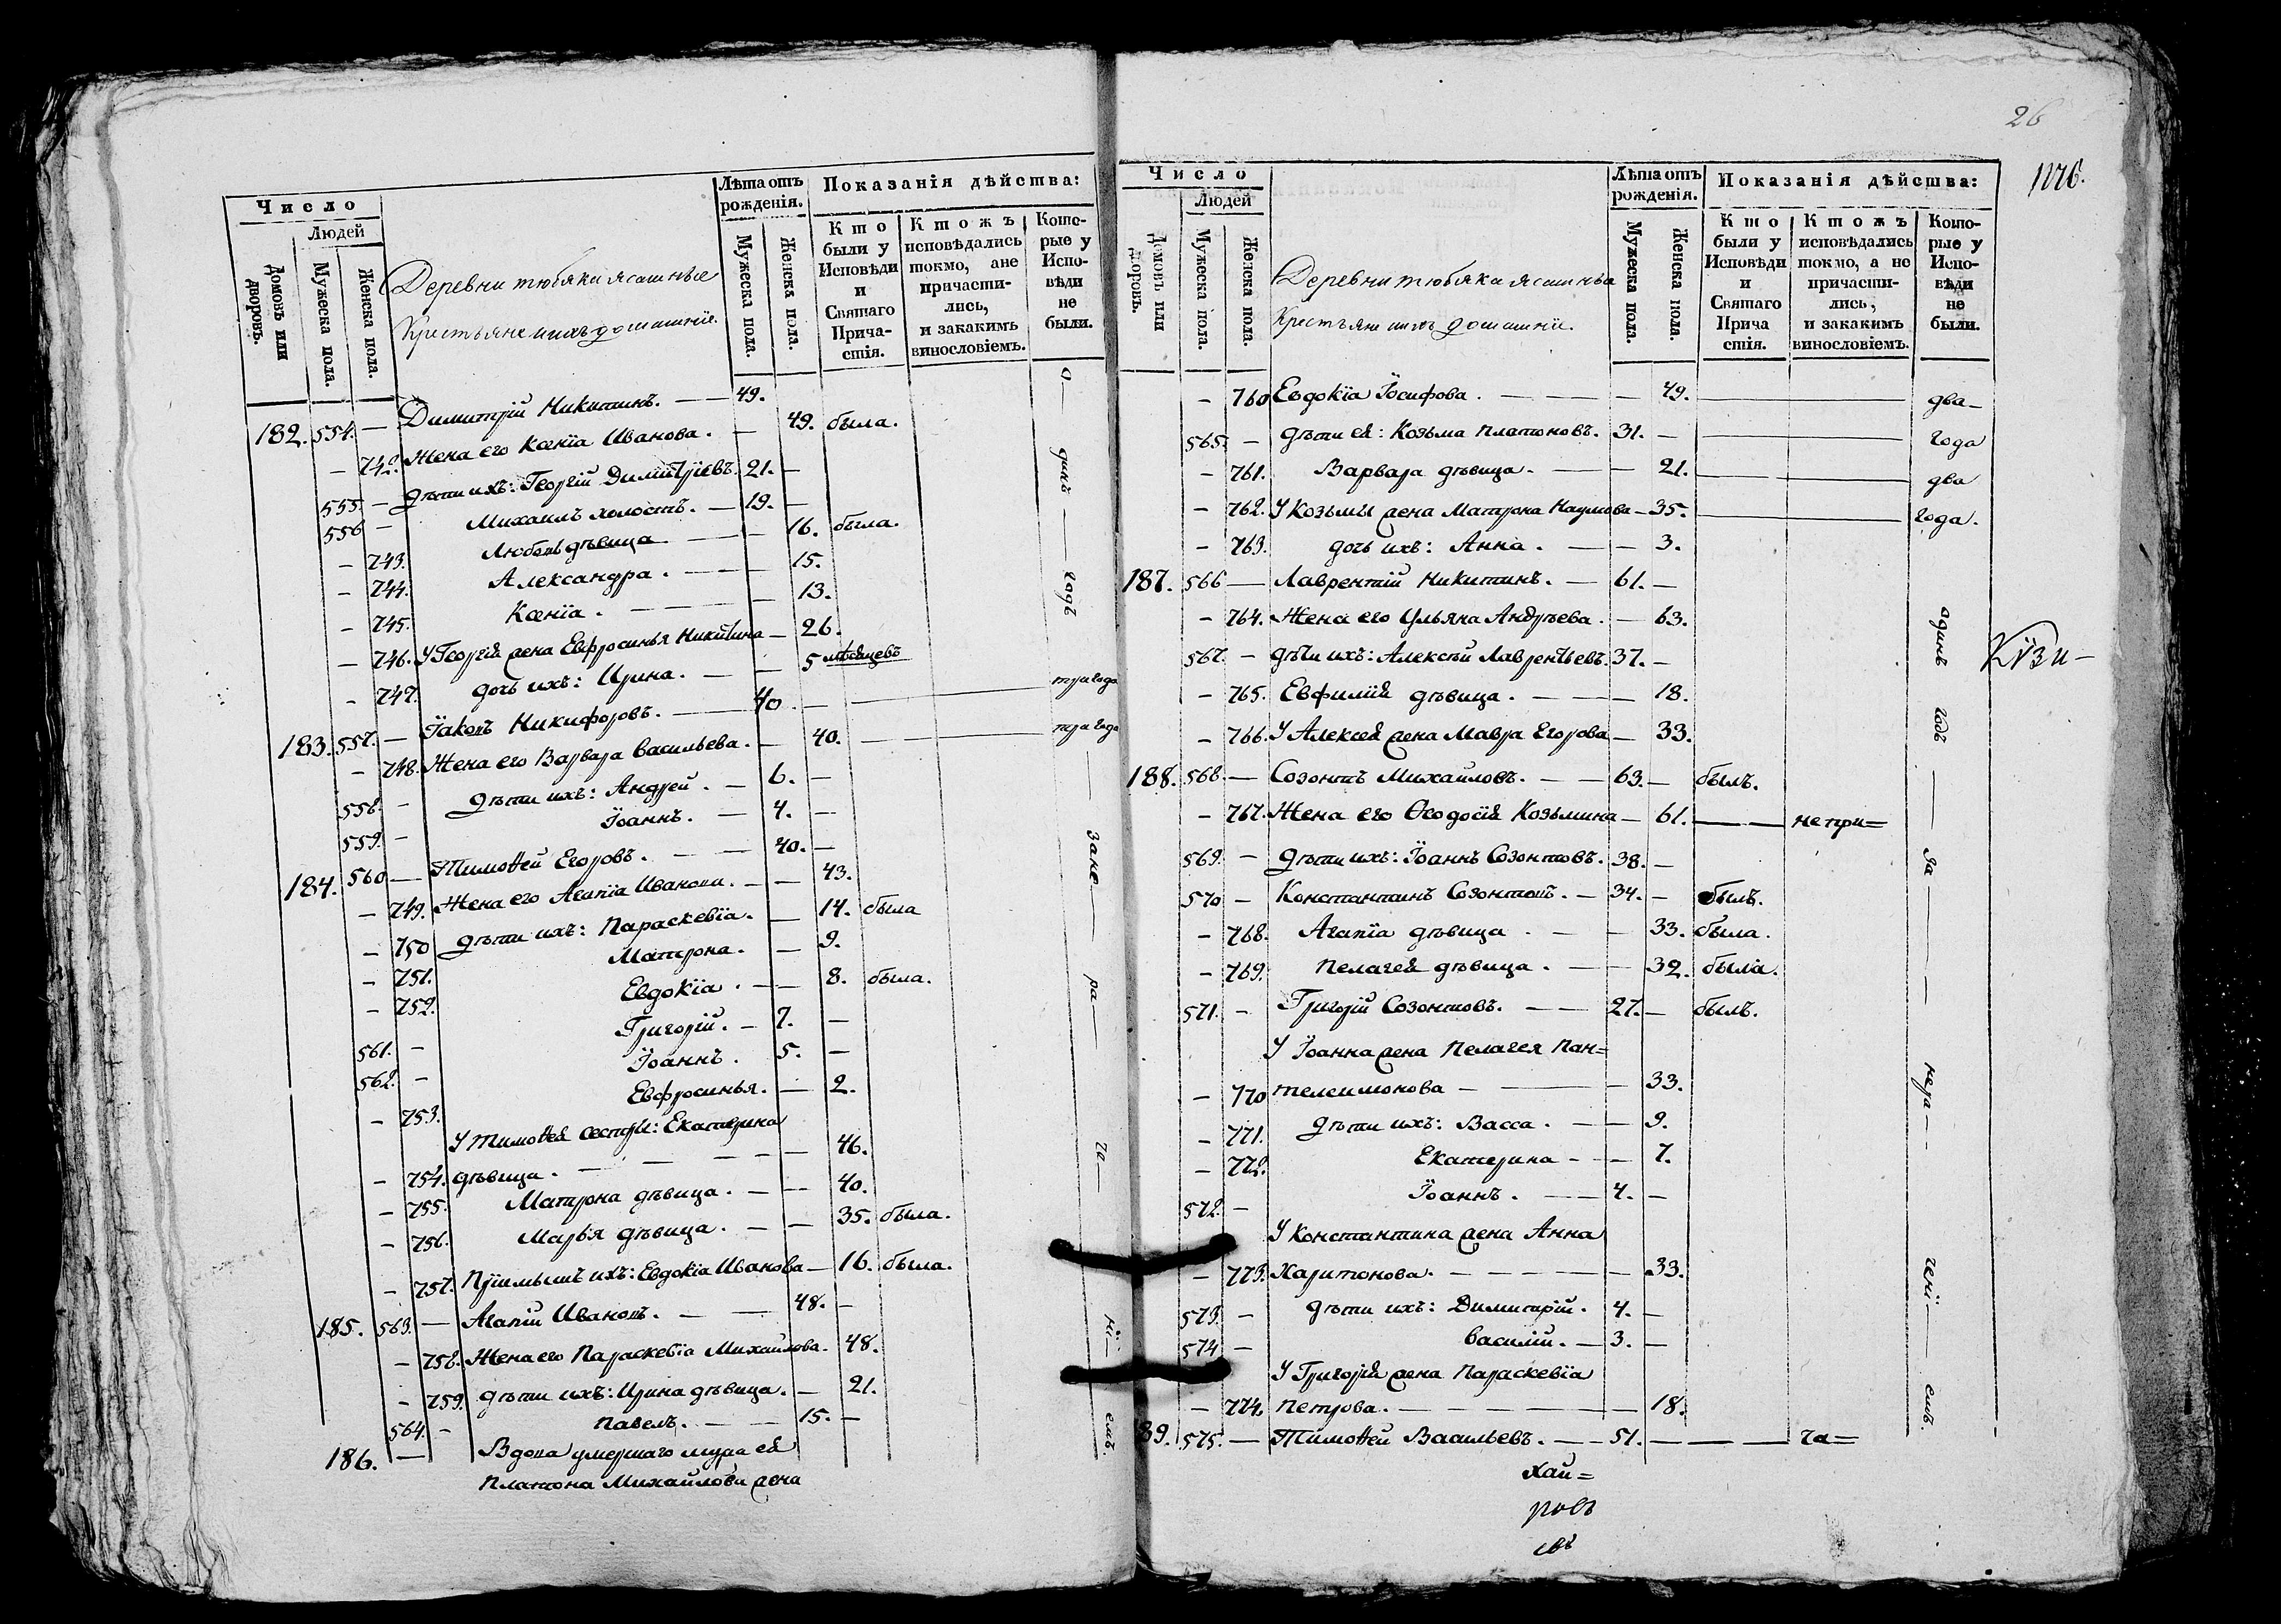 Число
Людей
Домовъ или дворовъ.
Мужеска пола.
Женска пола.
Деревни тюбяка ясашные
Крестьяне ихъ домашнїе.
Лѣта отъ рожденія.
Мужеска пола.
Женска пола.
Показанія дѣйства:
Кто были у Исповѣди и Святаго Причастія.
Ктожъ исповѣдались токмо, а не причастились, и закакимъ винословіемъ.
Которые у Исповѣди не были.
182. 554. — Димитрїй Никитинъ. — 49.
— 742. Жена его Ксенїа Иванова. — 49. была.
555. — дѣти ихъ: Георгїй Димитрїевъ. 21. —
556 — Михаилъ холостъ. — 19. —
— 743. Любовь дѣвица — 16. была.
— 744. Александра. — 15.
— 745. Ксенїа. — 13.
— 746. У Георгїя жена Евфросинья Никитина — 26.
— 747. дочь ихъ: Ирина. — 5 мѣсяцевъ
183. 557. — Їаковъ Никифоровъ. — 40 — три года
— 748. Жена его Варвара Васильева. — 40. — три года
558. — дѣти ихъ: Андрей. — 6. —
559. — Їоаннъ. — 4. —
184. 560 — Тимоѳей Егоровъ. — 40. —
— 749. Жена его Агапїа Иванова. — 43.
— 750 дѣти ихъ: Параскевїа. — 14. была
— 751. Матрона. — 9.
— 752. Евдокїа. — 8. была.
561. — Григорїй. — 7. —
562. — Їоаннъ. 5. —
— 753. Евфросинья. — 2.
У Тимоѳея сестры: Екатерина
— 754. дѣвица. — 46.
— 755. Матрона дѣвица. — 40.
— 756. Марья дѣвица. — 35. была.
— 757. Прїимышъ ихъ: Евдокїа Иванова — 16. была.
185. 563. — Агапїй Ивановъ. — 48. —
— 758. Жена его Параскевїа Михайлова. 48.
— 759. дѣти ихъ: Ирина дѣвица. — 21.
564. — Павелъ. — 15. —
186. — Вдова умершаго мужа ея
Платона Михайлова жена
о — динъ — годъ
за не — ра — че — нї — емъ.
26
1176.
Число
Людей
Домовъ или дворовъ.
Мужеска пола.
Женска пола.
Деревни тюбяка ясашные
Крестьяне ихъ домашнїе.
Лѣта отъ рожденія.
Мужеска пола.
Женска пола.
Показанія дѣйства:
Кто были у Исповѣди и Святаго Причастія.
Ктожъ исповѣдались токмо, а не причастились, и закакимъ винословіемъ.
Которые у Исповѣди не были.
— 760 Евдокїа Їосифова. — 49. — два
565. — дѣти ея: Козьма Платоновъ. 31. — года
— 761. Варвара дѣвица. — 21. — два
— 762. У Козьмы жена Матрона Наумова — 35. — года.
— 763. дочь ихъ: Анна. — 3.
187. 566 — Лаврентїй Никитинъ. — 61. —
— 764. Жена его Ульяна Андреева. — 63.
567. — дѣти ихъ: Алексѣй Лаврентьевъ. 37. —
— 765. Евфимїя дѣвица. — 18.
— 766. У Алексея жена Мавра Егорова — 33.
188. 568. — Созонтъ Михайловъ. — 63. — былъ.
— 767. Жена его Ѳеодосїя Козьмина — 61. — не при=
569. — дѣти ихъ: Їоаннъ Созонтовъ. 38. —
570 — Константинъ Созонтовъ. — 34. — былъ.
— 768. Агапїа дѣвица. — 33. была.
— 769. Пелагея дѣвица. — 32. была.
571. — Григорїй Созонтовъ. — 27. — былъ.
У Їоанна жена Пелагея Пан=
— 770 телеимонова — 33.
— 771. дѣти ихъ: Васса. — 9.
— 772. Екатерина — 7.
572. — Їоаннъ. — 4. —
У Константина жена Анна
— 773. Харитонова. — 33.
573. — дѣти ихъ: Димитрїй. 4. —
574 — Василїй. — 3. —
У Григорїя жена Параскевїа
— 774. Петрова. — 18.
89. 575. — Тимоѳей Васильевъ. — 51. — ча=
одинъ годъ — за — нера — ченї — емъ.
Кузи—
хай=
ровъ